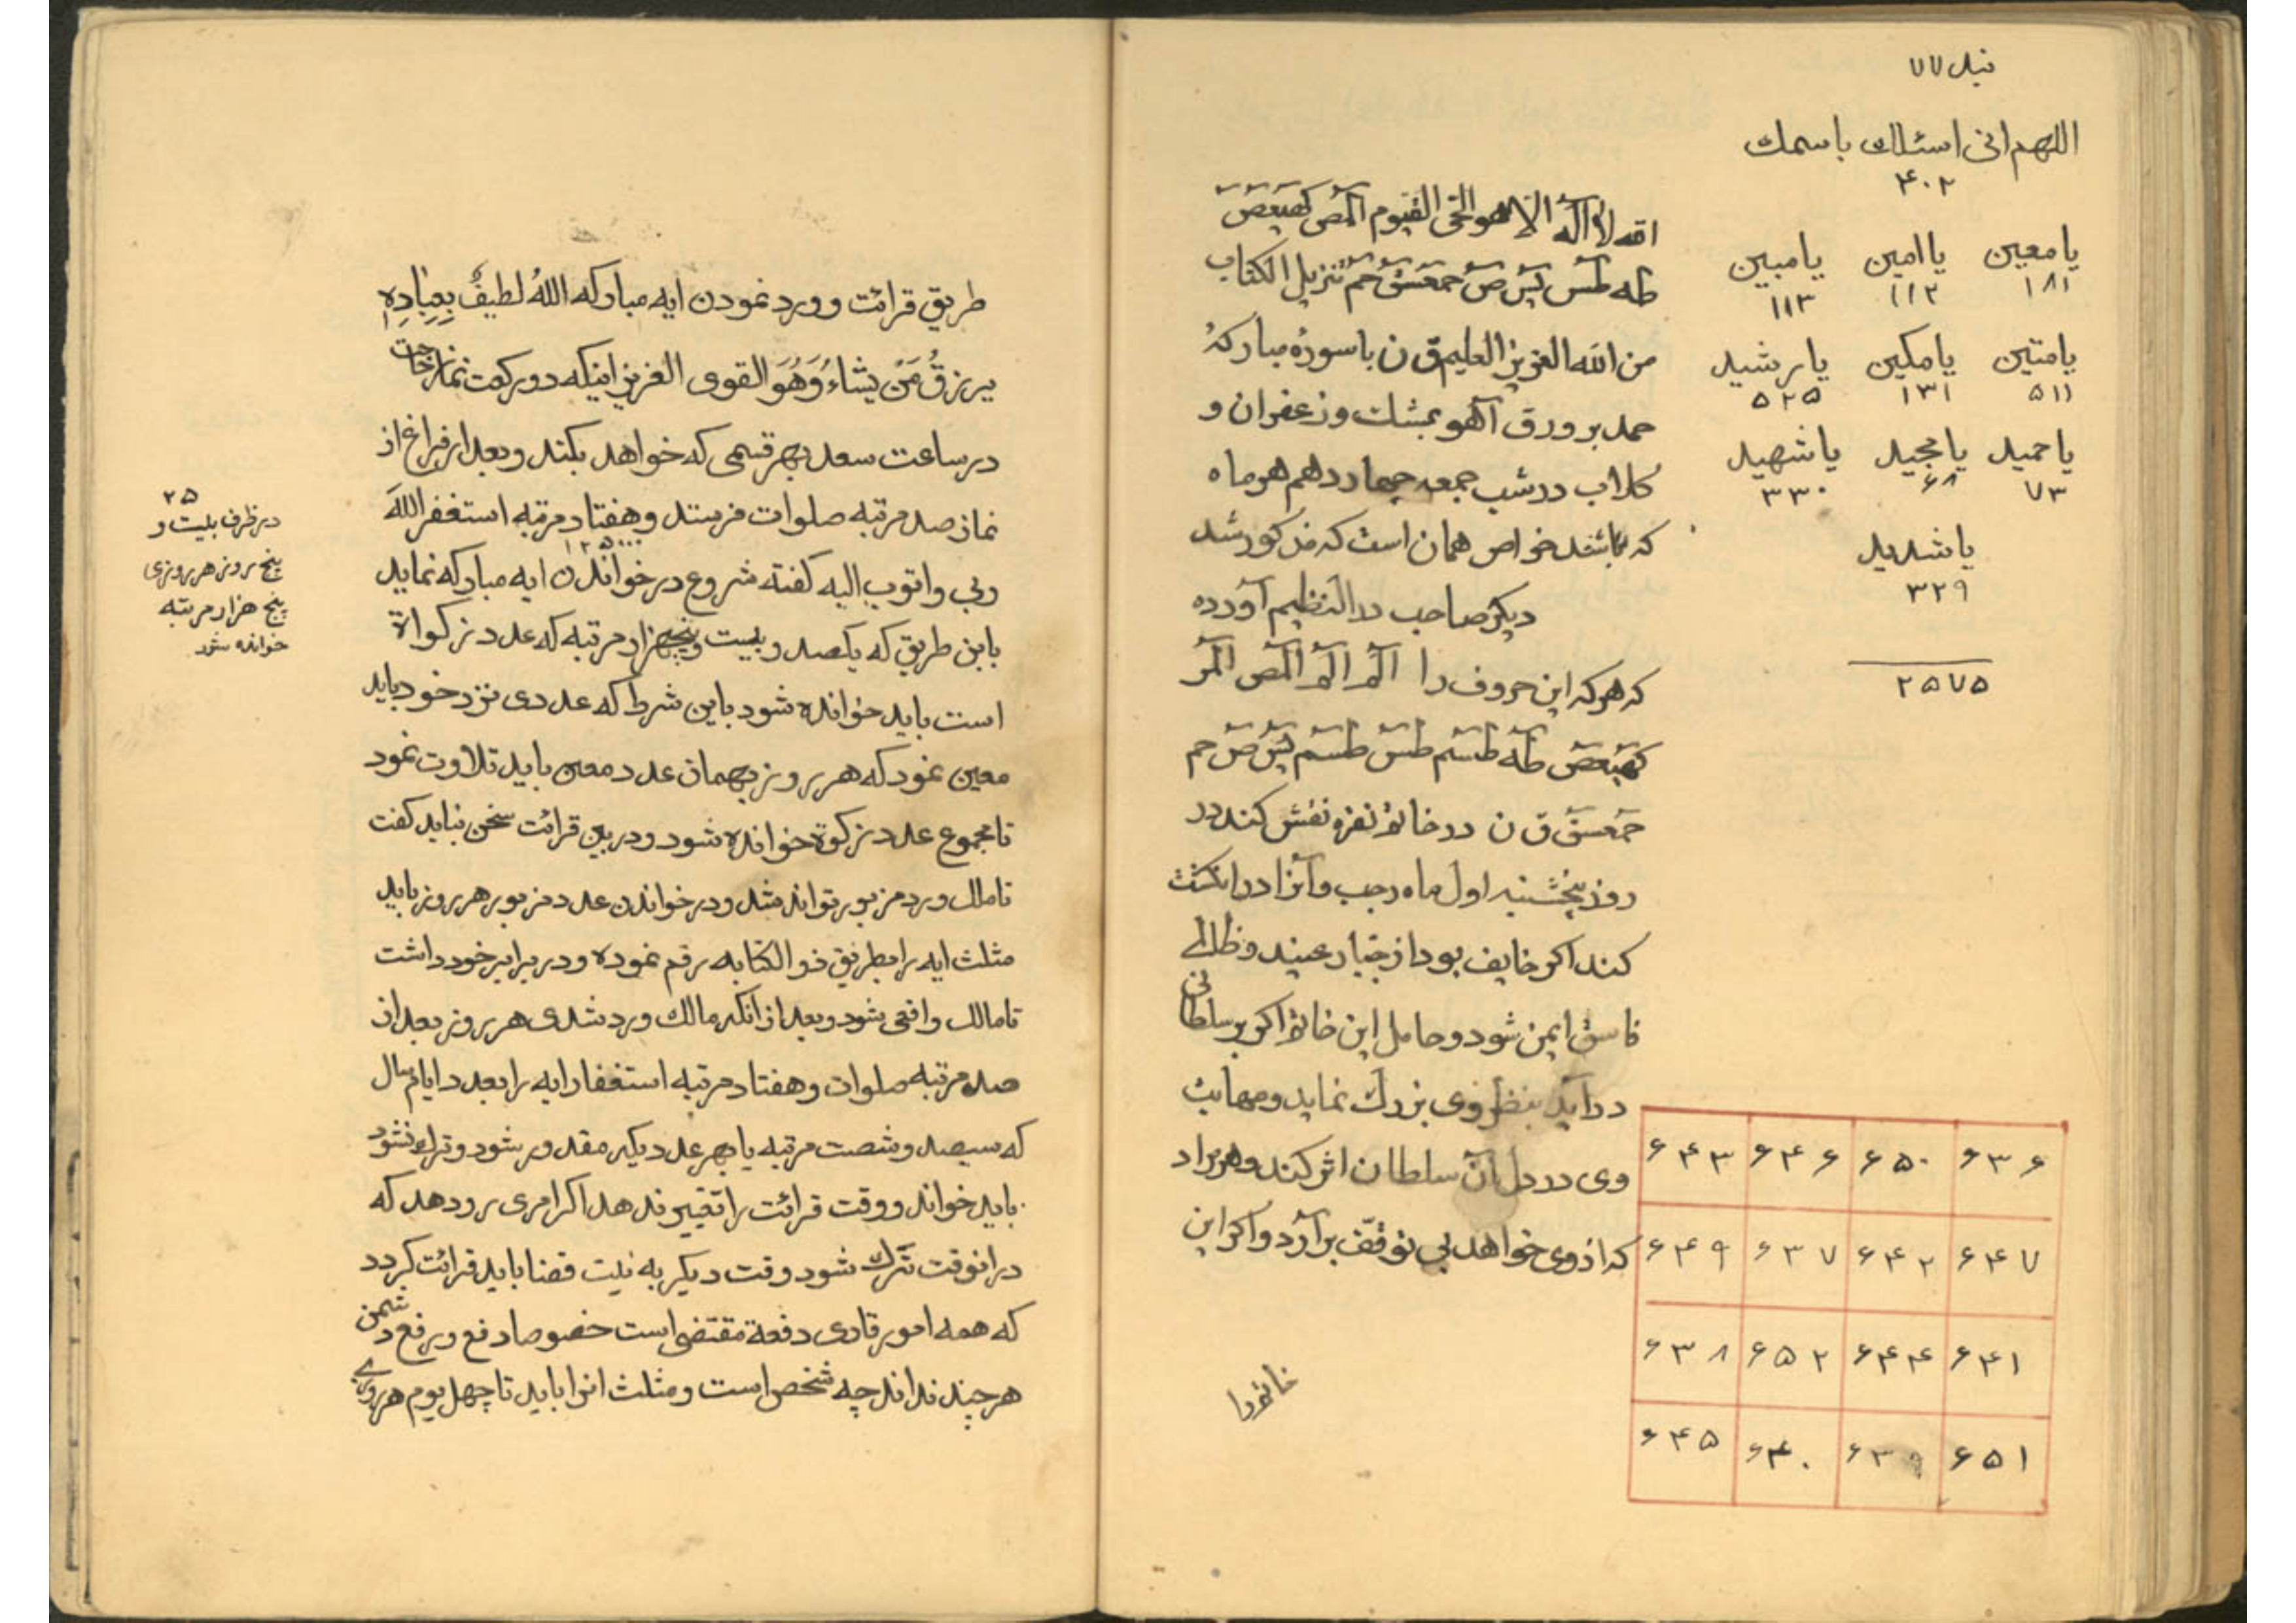 نیل ۷۷
اللهم انی اسئلك باسمك
۴۰۲
یا معین یا امین یا مبین
۱۸۱ ۱۱۲ ۱۱۳
یا متین یا مکین یا رشید
۵۱۱ ۱۳۱ ۵۲۵
یا حمید یا مجید یا شهید
۷۳ ۶۸ ۳۳۰
یا شدید
۳۲۹
۲۵۷۵
الله لا اله الا هو الحی القیوم المص کهیعص
طه طس یس ص حمعسق حم تنزیل الکتاب
من الله العزیز العلیم ق ن با سورهٔ مبارکهٔ
حمد بر ورق آهو بمشك و زعفران و
کلاب در شب جمعه چهاردهم هر ماه
که باشد خواص همان است که مذکور شد
دیکر صاحب در النظیم آورده
که هر که این حروف را الم الم المص المر
کهیعص طه طسم طس طسم یس ص حم
حمعسق ق ن در خاتم نقره نقش کند در
روز پنجشنبه اول ماه رجب و آنرا در انکشت
کند اکر خایف بود از جبار عنید و ظالمی
فاسق ایمن شود و حامل این خاتم اکر بر سلطانی
در آید بنظر وی بزرك نماید و مهابت
وی در دل آن سلطان اثر کند و هر مراد
که از وی خواهد بی توقّف برآرد و اکر این
خاتم را
۶۳۶ ۶۵۰ ۶۴۶ ۶۴۳
۶۴۷ ۶۴۲ ۶۳۷ ۶۴۹
۶۴۱ ۶۴۴ ۶۵۲ ۶۳۸
۶۵۱ ۶۳۹ ۶۴۰ ۶۴۵
طریق قرائت و ورد نمودن ایه مبارکه اللهُ لطیفٌ بِعِبٰادِهِ
یرزقُ مَنْ یشاءُ وَهُوَ القوی العزیز اینکه دو رکعت نماز حاجت
در ساعت سعد بهر قسمی که خواهد بکند و بعد از فراغ از
نماز صد مرتبه صلوات فرستد و هفتاد مرتبه استغفر اللهَ
ربی واتوب الیه کفته شروع در خواندن ایه مبارکه نماید
۱۲۵۰۰۰
باین طریق که یکصد و بیست و پنجهزار مرتبه که عدد زکواة
است باید خوانده شود باین شرط که عددی نزد خود باید
معین نمود که هر روز بهمان عدد معین باید تلاوت نمود
تا مجموع عدد زکوة خوانده شود و در بین قرائت سخن نباید کفت
تا مالك ورد مزبور تواند شد و در خواندن عدد مزبور هر روز باید
مثلث ایه را بطریق ذو الکتابه رقم نموده و در برابر خود داشت
تا مالك واقعی شود و بعد از انکه مالك ورد شدی هر روز بعد از
صد مرتبه صلوات و هفتاد مرتبه استغفار ایه را بعدد ایام سال
که سیصد و شصت مرتبه یا بهر عدد دیکر مقدور شود و ترك نشود
باید خواند و وقت قرائت را تغییر ندهد اکر امری رو دهد که
در انوقت ترك شود وقت دیکر به نیت قضا باید قرائت کردد
که همه امور قاری دفعة مقتضی است خصوصا دفع و رفع دشمن
هر چند نداند چه شخص است و مثلث انرا باید تا چهل یوم هر روزی
۲۵
در ظرف بیست و
پنج روز هر روزی
پنج هزار مرتبه
خوانده شود